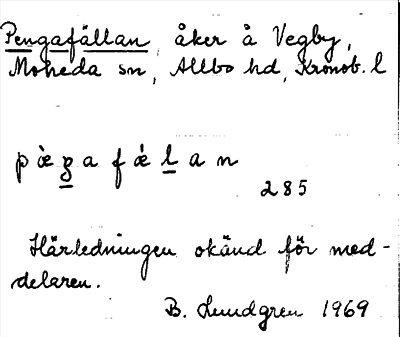 Pengafällan, åker å Vegby,
Moheda sn, Allbo hd, Kronob. l
pὲꞬafǽlan
285
Härledningen okänd för med-
delaren.
B. Lundgren 1969